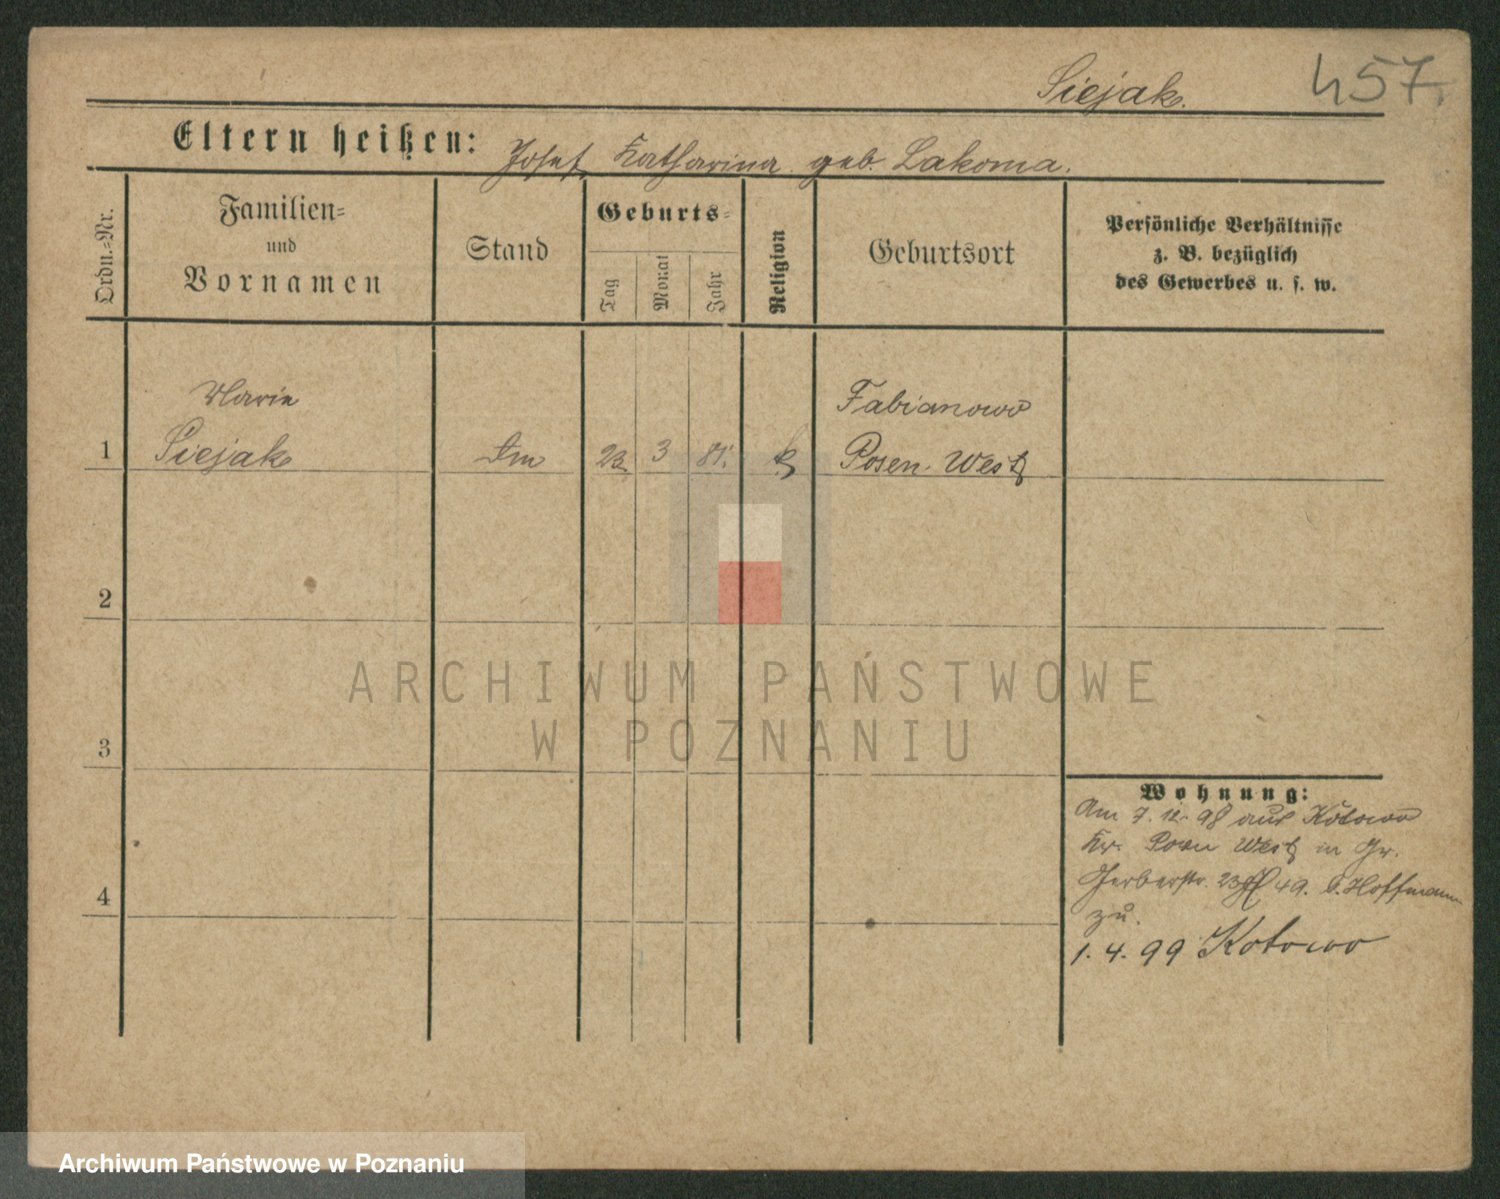 Siejak.
457.
Eltern heißen: Josef, Katharina geb. Lakoma.
Ordn.-Nr.
Familien-
und
Vornamen
Stand
Geburts-
Tag
Monat
Jahr
Religion
Geburtsort
Persönliche Verhältnisse
z. B. bezüglich
des Gewerbes u. s. w.
Marie
Fabianowo
1 Siejak 23 3 81. k Posen. West
2
ARCHIWUM PAŃSTWOWE
W POZNANIU
3
Wohnung:
Am 7. 12. 98 aus Kotowo
Kr. Posen West in Gr.
Gerberstr. 23 49. b. Hoffmann
4
zu.
1. 4. 99 Kotowo
Archiwum Państwowe w Poznaniu